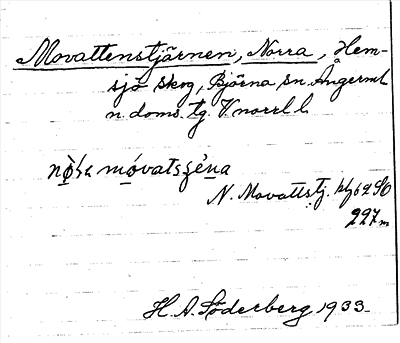 Movattenstjärnen, Norra, Hem-
sjö skog, Björna sn. Ångerml.
n. doms. tg. V.norrl. l.
movatsʒɛ̀na
N. Movattstj.
297 m
H. A. Söderberg 1933.